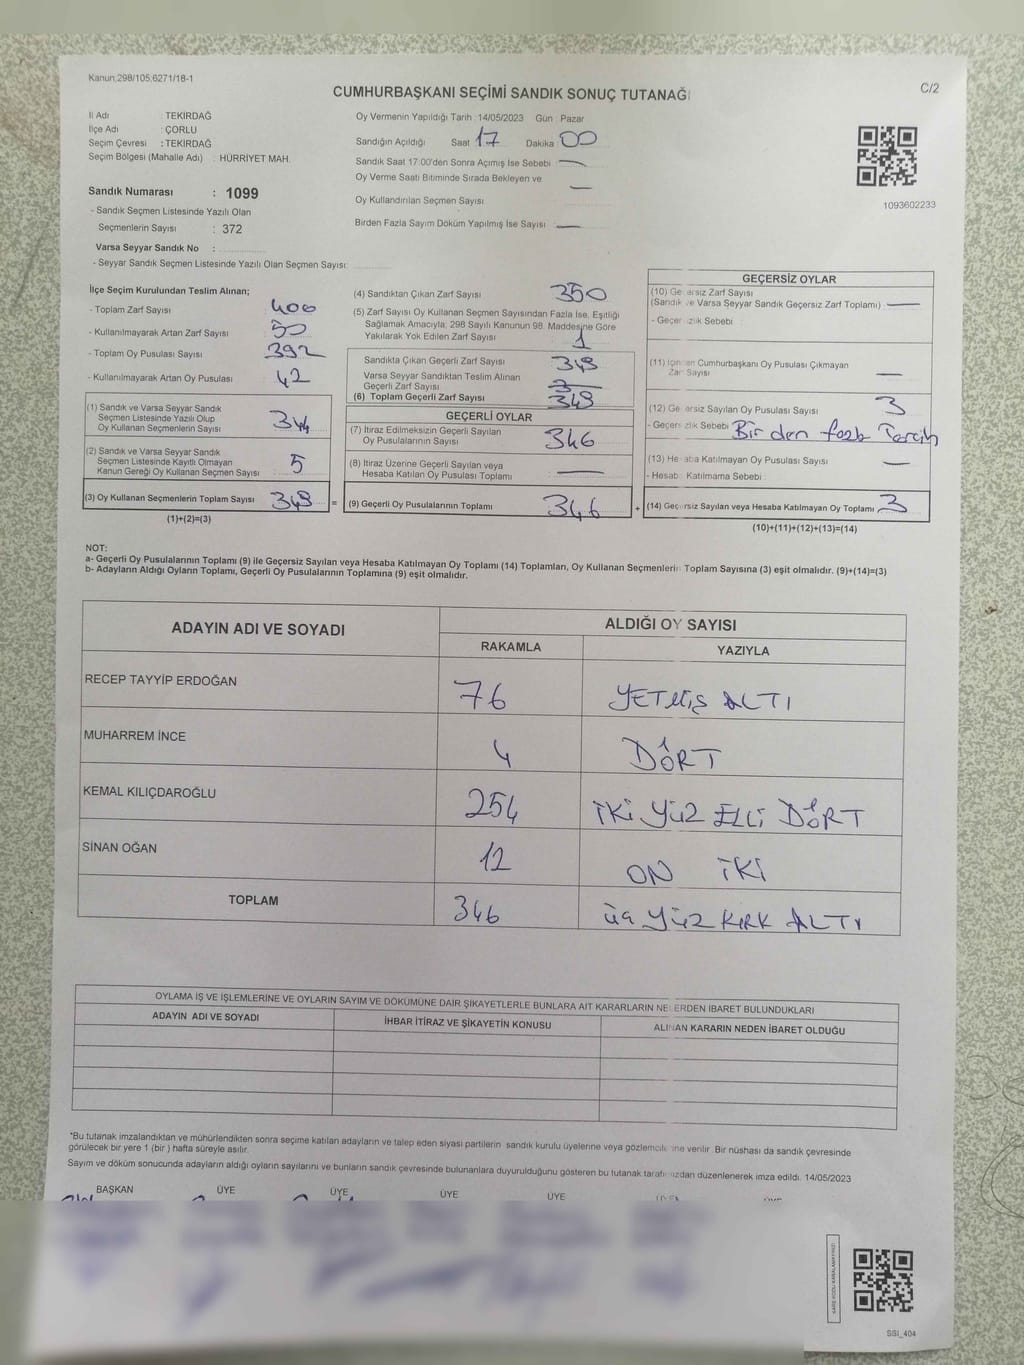 Kanun,298/105,6271/18-1
CUMHURBAŞKANI SEÇİMİ SANDIK SONUÇ TUTANAĞI
C/2
İl Adı : TEKİRDAĞ
İlçe Adı : ÇORLU
Seçim Çevresi : TEKİRDAĞ
Seçim Bölgesi (Mahalle Adı) : HÜRRİYET MAH.
Sandık Numarası : 1099
- Sandık Seçmen Listesinde Yazılı Olan
Seçmenlerin Sayısı : 372
Varsa Seyyar Sandık No :
- Seyyar Sandık Seçmen Listesinde Yazılı Olan Seçmen Sayısı:
Oy Vermenin Yapıldığı Tarih : 14/05/2023 Gün : Pazar
Sandığın Açıldığı Saat 17 Dakika 00
Sandık Saat 17:00'den Sonra Açımış İse Sebebi —
Oy Verme Saati Bitiminde Sırada Bekleyen ve
Oy Kullandırılan Seçmen Sayısı —
Birden Fazla Sayım Döküm Yapılmış İse Sayısı —
1093602233
İlçe Seçim Kurulundan Teslim Alınan;
- Toplam Zarf Sayısı 400
- Kullanılmayarak Artan Zarf Sayısı 50
- Toplam Oy Pusulası Sayısı 392
- Kullanılmayarak Artan Oy Pusulası 42
(1) Sandık ve Varsa Seyyar Sandık
Seçmen Listesinde Yazılı Olup
Oy Kullanan Seçmenlerin Sayısı 344
(2) Sandık ve Varsa Seyyar Sandık
Seçmen Listesinde Kayıtlı Olmayan
Kanun Gereği Oy Kullanan Seçmen Sayısı 5
(3) Oy Kullanan Seçmenlerin Toplam Sayısı 349 =
(1)+(2)=(3)
(4) Sandıktan Çıkan Zarf Sayısı 350
(5) Zarf Sayısı Oy Kullanan Seçmen Sayısından Fazla İse, Eşitliği
Sağlamak Amacıyla, 298 Sayılı Kanunun 98. Maddesine Göre
Yakılarak Yok Edilen Zarf Sayısı 1
Sandıkta Çıkan Geçerli Zarf Sayısı 349
Varsa Seyyar Sandıktan Teslim Alınan
Geçerli Zarf Sayısı
(6) Toplam Geçerli Zarf Sayısı 349
GEÇERLİ OYLAR
(7) İtiraz Edilmeksizin Geçerli Sayılan
Oy Pusulalarının Sayısı 346
(8) İtiraz Üzerine Geçerli Sayılan veya
Hesaba Katılan Oy Pusulaları Toplamı —
(9) Geçerli Oy Pusulalarının Toplamı 346 +
GEÇERSİZ OYLAR
(10) Geçersiz Zarf Sayısı
(Sandık ve Varsa Seyyar Sandık Geçersiz Zarf Toplamı) —
- Geçersizlik Sebebi :
(11) İçinden Cumhurbaşkanı Oy Pusulası Çıkmayan
Zarf Sayısı —
(12) Geçersiz Sayılan Oy Pusulası Sayısı 3
- Geçersizlik Sebebi : Birden fazla Tercih
(13) Hesaba Katılmayan Oy Pusulası Sayısı —
- Hesaba Katılmama Sebebi :
(14) Geçersiz Sayılan veya Hesaba Katılmayan Oy Toplamı 3
(10)+(11)+(12)+(13)=(14)
NOT:
a- Geçerli Oy Pusulalarının Toplamı (9) ile Geçersiz Sayılan veya Hesaba Katılmayan Oy Toplamı (14) Toplamları, Oy Kullanan Seçmenlerin Toplam Sayısına (3) eşit olmalıdır. (9)+(14)=(3)
b- Adayların Aldığı Oyların Toplamı, Geçerli Oy Pusulalarının Toplamına (9) eşit olmalıdır.
ADAYIN ADI VE SOYADI
ALDIĞI OY SAYISI
RAKAMLA YAZIYLA
RECEP TAYYİP ERDOĞAN 76 YETMİŞ ALTI
MUHARREM İNCE 4 DÖRT
KEMAL KILIÇDAROĞLU 254 İKİ YÜZ ELLİ DÖRT
SİNAN OĞAN 12 ON İKİ
TOPLAM 346 ÜÇ YÜZ KIRK ALTI
OYLAMA İŞ VE İŞLEMLERİNE VE OYLARIN SAYIM VE DÖKÜMÜNE DAİR ŞİKAYETLERLE BUNLARA AİT KARARLARIN NELERDEN İBARET BULUNDUKLARI
ADAYIN ADI VE SOYADI İHBAR İTİRAZ VE ŞİKAYETİN KONUSU ALINAN KARARIN NEDEN İBARET OLDUĞU
*Bu tutanak imzalandıktan ve mühürlendikten sonra seçime katılan adayların ve talep eden siyasi partilerin sandık kurulu üyelerine veya gözlemcilerine verilir. Bir nüshası da sandık çevresinde
görülecek bir yere 1 (bir ) hafta süreyle asılır.
Sayım ve döküm sonucunda adayların aldığı oyların sayılarını ve bunların sandık çevresinde bulunanlara duyurulduğunu gösteren bu tutanak tarafımızdan düzenlenerek imza edildi. 14/05/2023
BAŞKAN ÜYE ÜYE ÜYE ÜYE
SSİ_404